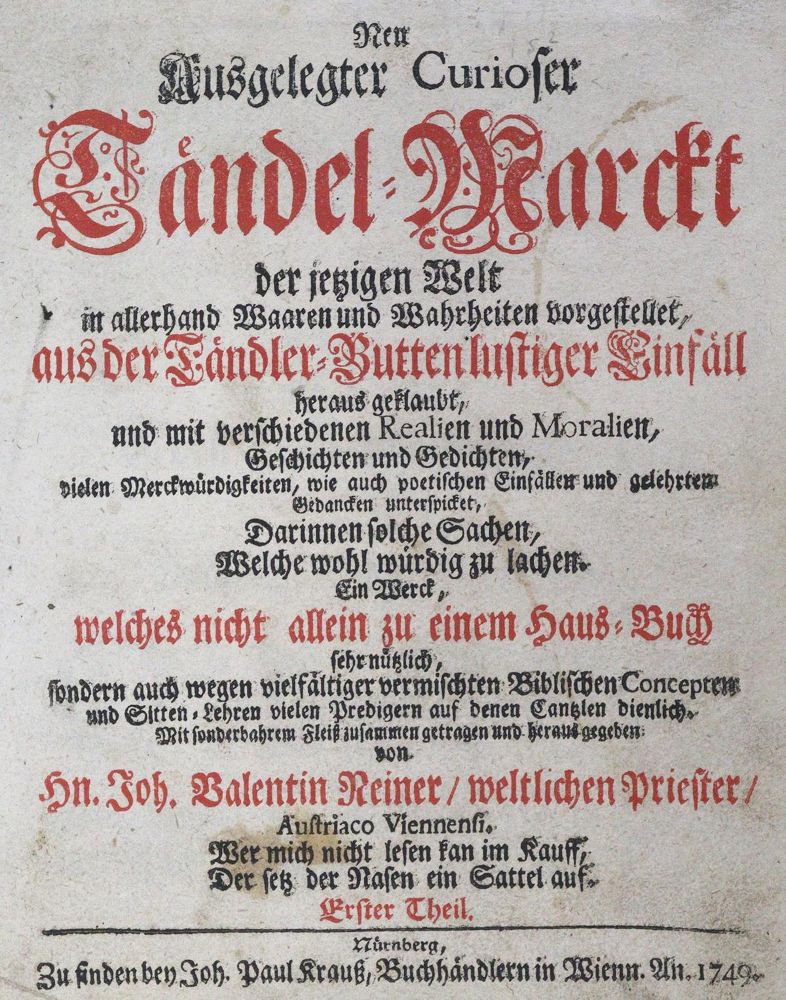 Neu
Ausgelegter Curioser
Tändel-Marckt
der jetzigen Welt
in allerhand Waaren und Wahrheiten vorgestellet,
aus der Tändler-Butten lustiger Einfäll
heraus geklaubt,
und mit verschiedenen Realien und Moralien,
Geschichten und Gedichten,
vielen Merckwürdigkeiten, wie auch poetischen Einfällen und gelehrten
Gedancken unterspicket,
Darinnen solche Sachen,
Welche wohl würdig zu lachen.
Ein Werck,
welches nicht allein zu einem Haus-Buch
sehr nützlich,
sondern auch wegen vielfältiger vermischten Biblischen Concepten
und Sitten-Lehren vielen Predigern auf denen Cantzlen dienlich.
Mit sonderbahrem Fleiß zusammen getragen und heraus gegeben
von
Hn. Joh. Valentin Neiner/ weltlichen Priester/
Austriaco Viennensi.
Wer mich nicht lesen kan im Kauff,
Der setz der Nasen ein Sattel auf.
Erster Theil.
Nürnberg,
Zu finden bey Joh. Paul Krauß, Buchhändlern in Wienn. An. 1749.